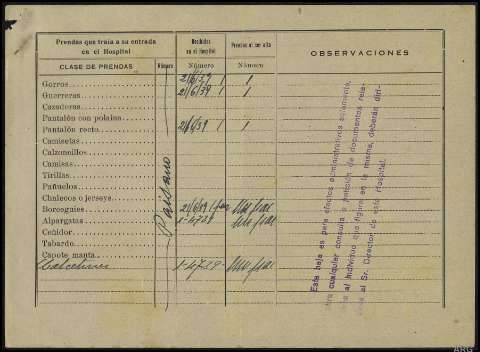 Prendas que traía a su entrada en el Hospital
Recibidas en el Hospital
Prendas al ser alta
OBSERVACIONES
CLASE DE PRENDAS
Número
Número
Número
Gorros 21/6/39 1 1
Guerreras 21/6/39 1 1
Cazadoras
Pantalón con polaina
Pantalón recto 21/6/39 1 1
Camisetas
Calzoncillos
Camisas
Tirillas
Pañuelos
Chalecos o jerseys
Borceguíes 21/6/39 1 par Un par
Alpargatas 1-4739 Un par
Ceñidor
Tabardo
Capote manta
Calcetines 1-4739- Un par
Paisano
Esta baja es para efectos administrativos solamente,
para cualquier consulta o petición de documentos rela-
tiva al individuo que figura en la misma, deberán diri-
girse al Sr. Director de este Hospital.
ARG